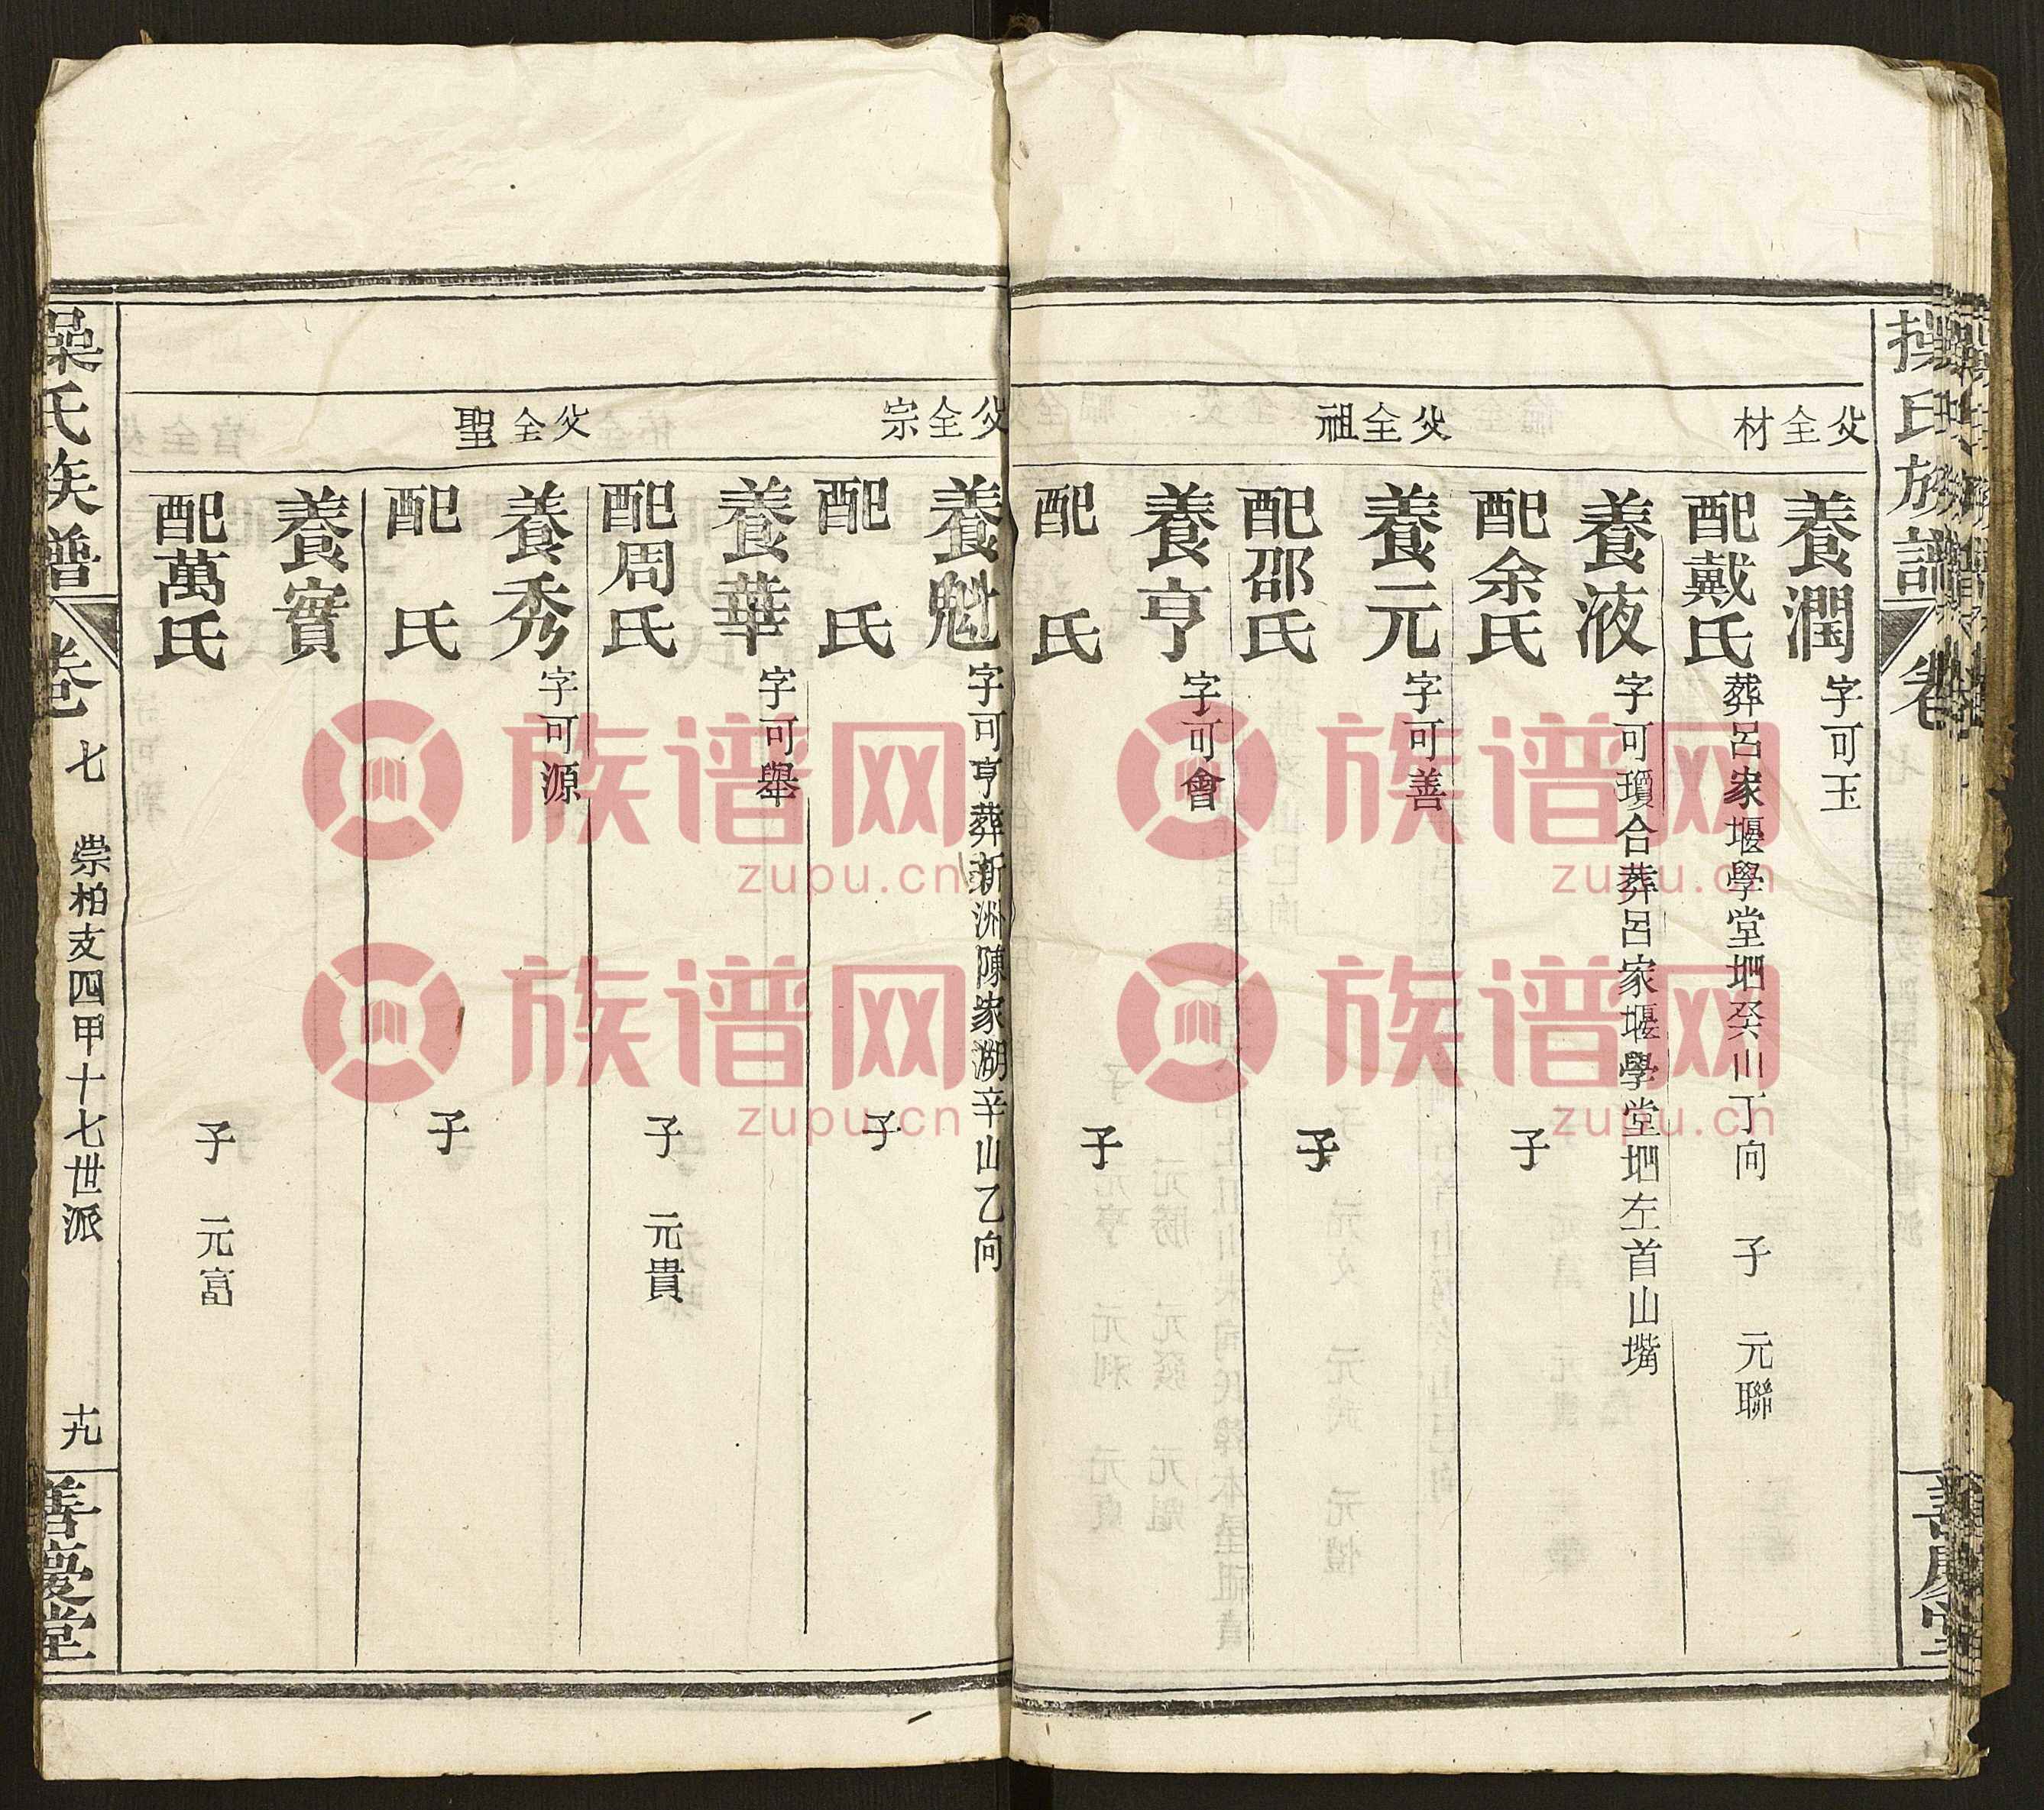 操氏族譜
卷
善慶堂
父仝材
養潤 字可玉
配戴氏 葬呂家堰學堂地癸山丁向 子 元聯
養液 字可瓊合葬呂家堰學堂地左首山嘴
配余氏 子
父仝祖
養元 字可善
配邵氏 子
養亨 字可會
配 氏 子
父仝宗
養魁 字可亨葬新洲陳家湖辛山乙向
配 氏 子
養華 字可舉
配周氏 子 元貴
父仝聖
養秀 字可源
配 氏 子
養實
配萬氏 子 元富
操氏族譜
卷七 崇柏支四甲十七世派 十九
善慶堂
族谱网
zupu.cn
族谱网
zupu.cn
族谱网
zupu.cn
族谱网
zupu.cn